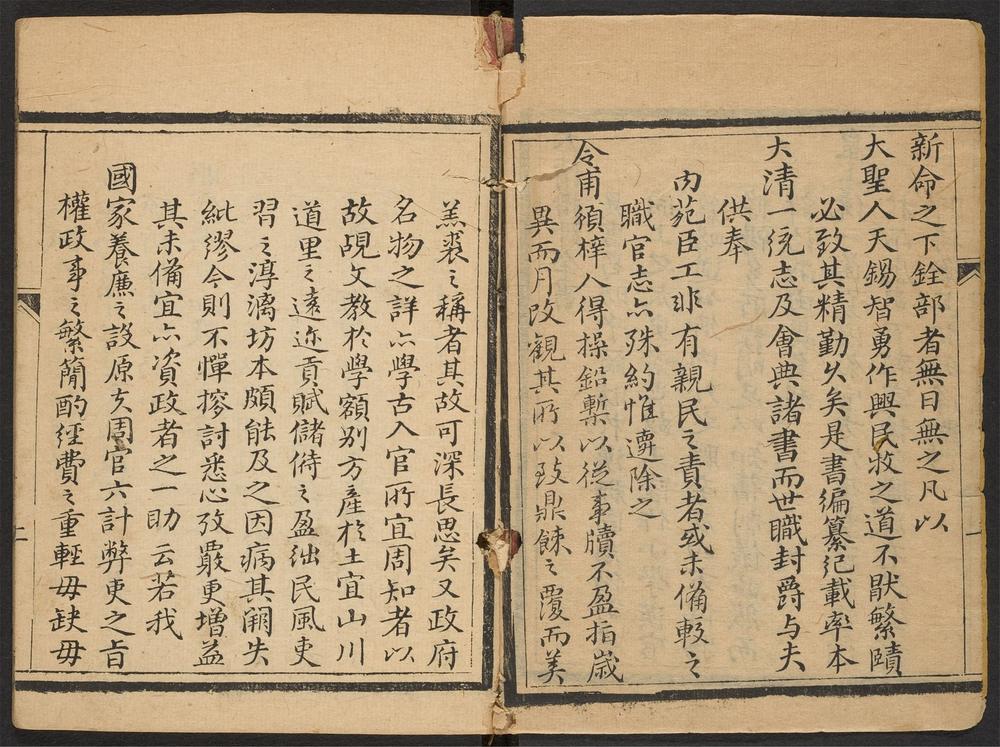 新命之下銓部者無日無之凡以
大聖人天錫智勇作興民牧之道不厭繁賾
必致其精勤久矣是書編纂紀載率本
大清一統志及會典諸書而世職封爵与夫
供奉
内苑臣工非有親民之責者或未備較之
職官志亦殊約惟遴除之
令甫頒梓人得操鉛槧以從事牘不盈指歲
異而月改觀其所以致鼎餗之覆而美
羔裘之稱者其故可深長思矣又政府
名物之詳亦學古入官所宜周知者以
故覘文教於學額别方產於土宜山川
道里之遠迩貢賦儲偫之盈絀民風吏
習之淳漓坊本頗能及之因病其闕失
紕繆今則不憚搜討悉心攷覈更增益
其未備宜亦資政者之一助云若我
國家養廉之設原夫周官六計弊吏之旨
權政事之繁簡酌經費之重輕毋缺毋
一
二